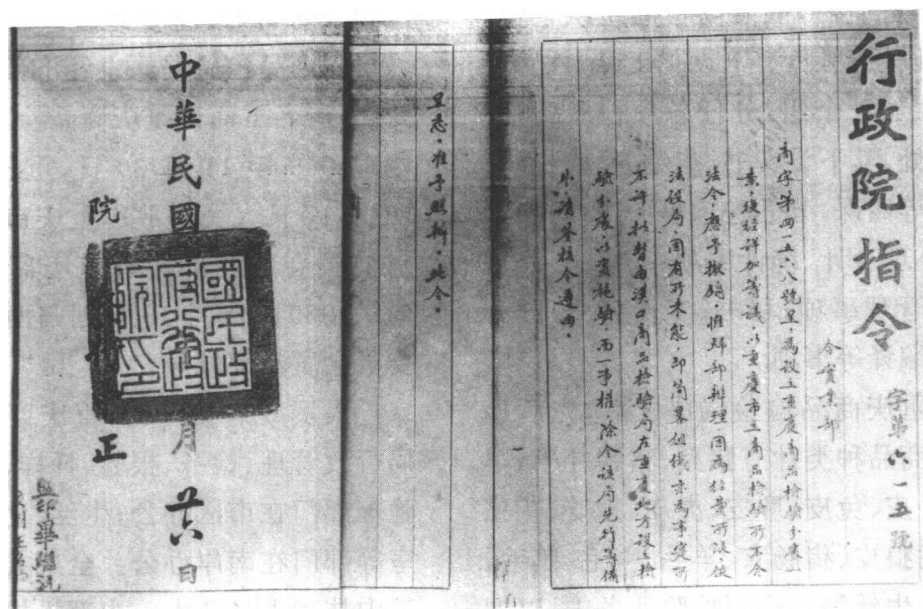 行政院指令
字第六一五號
令實業部
商字第四一五六八號呈，為設立重慶商品檢驗分處
案，復經詳加籌議，以重慶市立商品檢驗所不合
法令，應予撤銷，惟歸部辦理，因為經費所限，依
法設局，固有所未能，即簡畧組織亦為事實所
不許，擬暫由漢口商品檢驗局在重慶地方設立檢
驗分處，以實施驗，而一事權，除令該局先行籌備
外，請鑒核令遵由。
呈悉，准予照辦，此令。
中華民國
月廿六日
院
正
國民政府行政院印
監印畢繼
校對